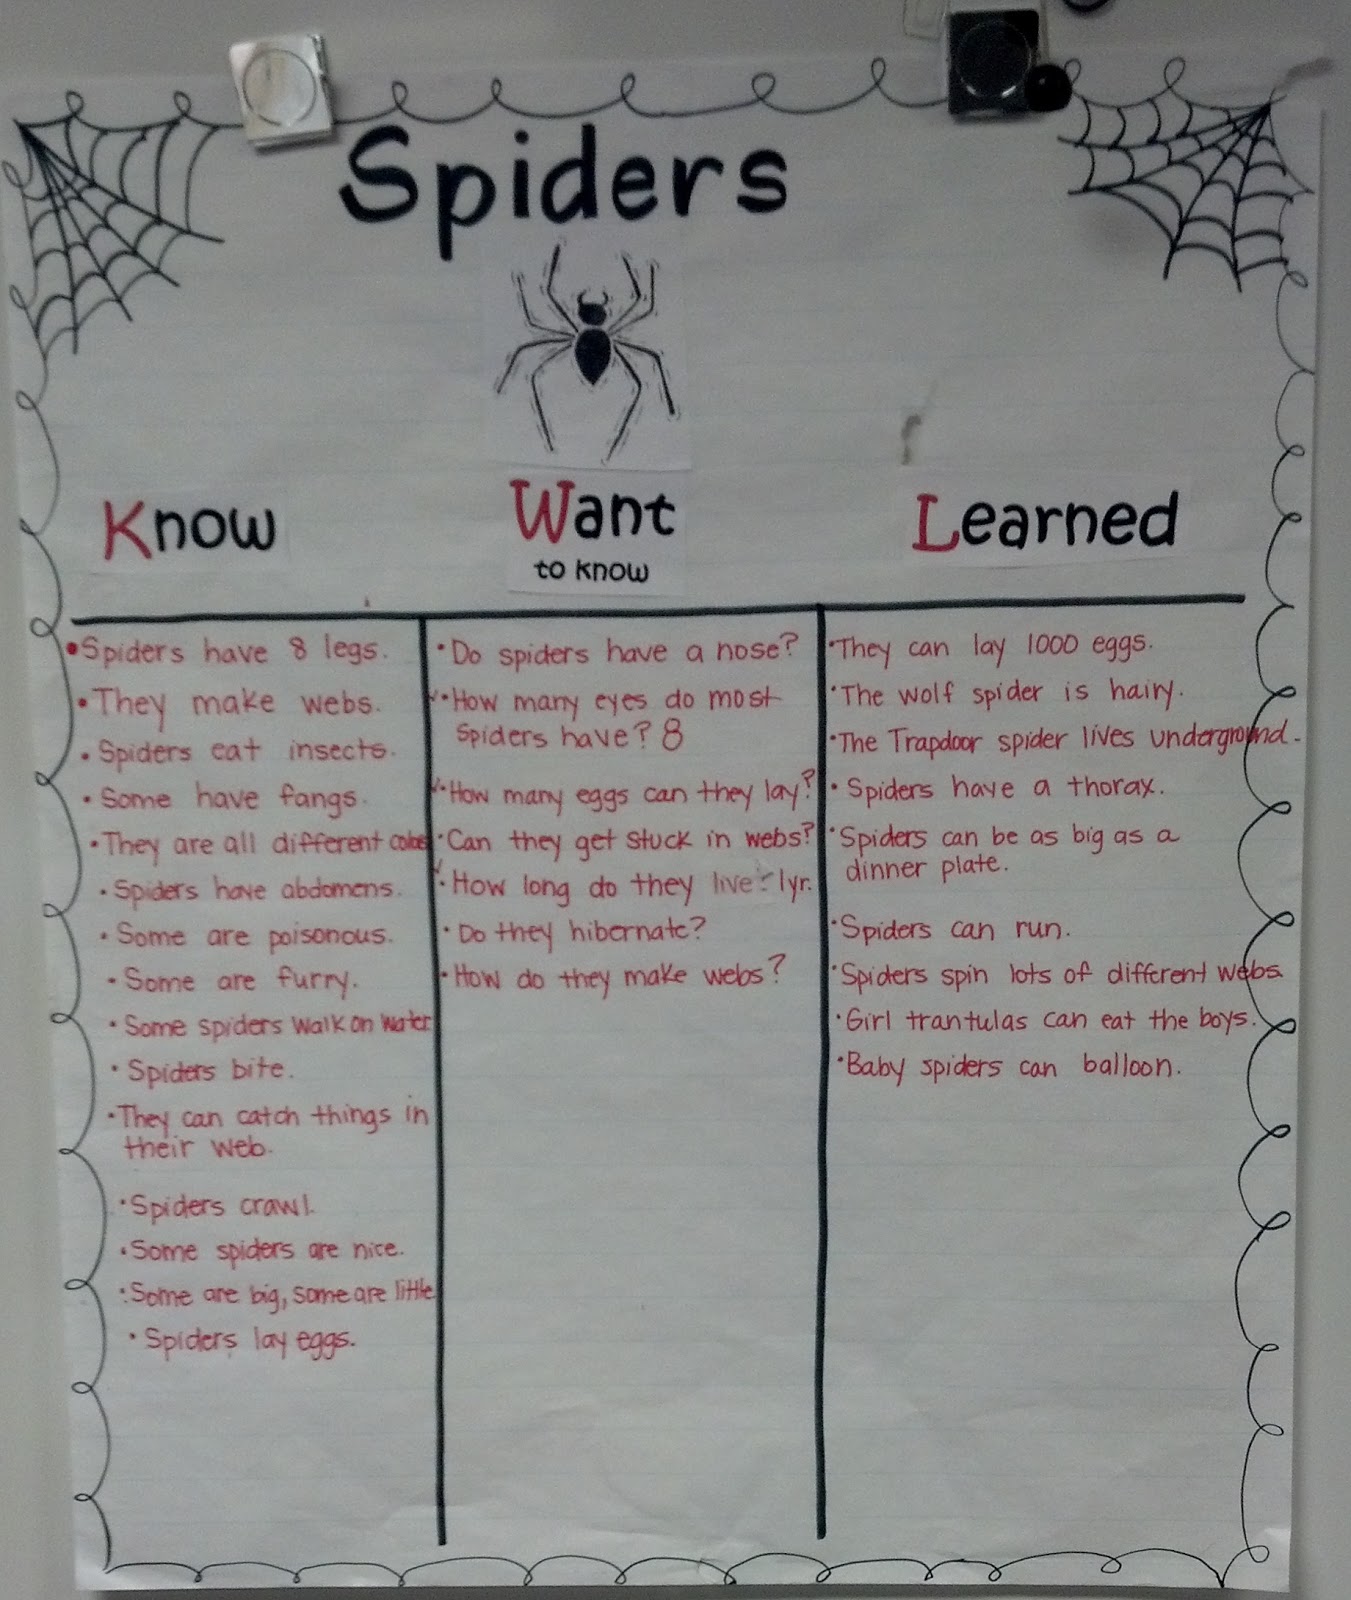 Spiders
Know
Want
to know
Learned
•Spiders have 8 legs.
•They make webs.
•Spiders eat insects.
•Some have fangs.
•They are all different
•Spiders have abdomens.
•Some are poisonous.
•Some are furry.
•Some spiders walk on water
•Spiders bite.
•They can catch things in
their web.
•Spiders crawl.
•Some spiders are nice.
•Some are big, some are little
•Spiders lay eggs.
•Do spiders have a nose?
✓•How many eyes do most
spiders have? 8
✓•How many eggs can they lay?
•Can they get stuck in webs?
✓•How long do they live - 1yr.
•Do they hibernate?
•How do they make webs?
•They can lay 1000 eggs.
•The wolf spider is hairy.
•The Trapdoor spider lives underground.
•Spiders have a thorax.
•Spiders can be as big as a
dinner plate.
•Spiders can run.
•Spiders spin lots of different webs.
•Girl trantulas can eat the boys.
•Baby spiders can balloon.